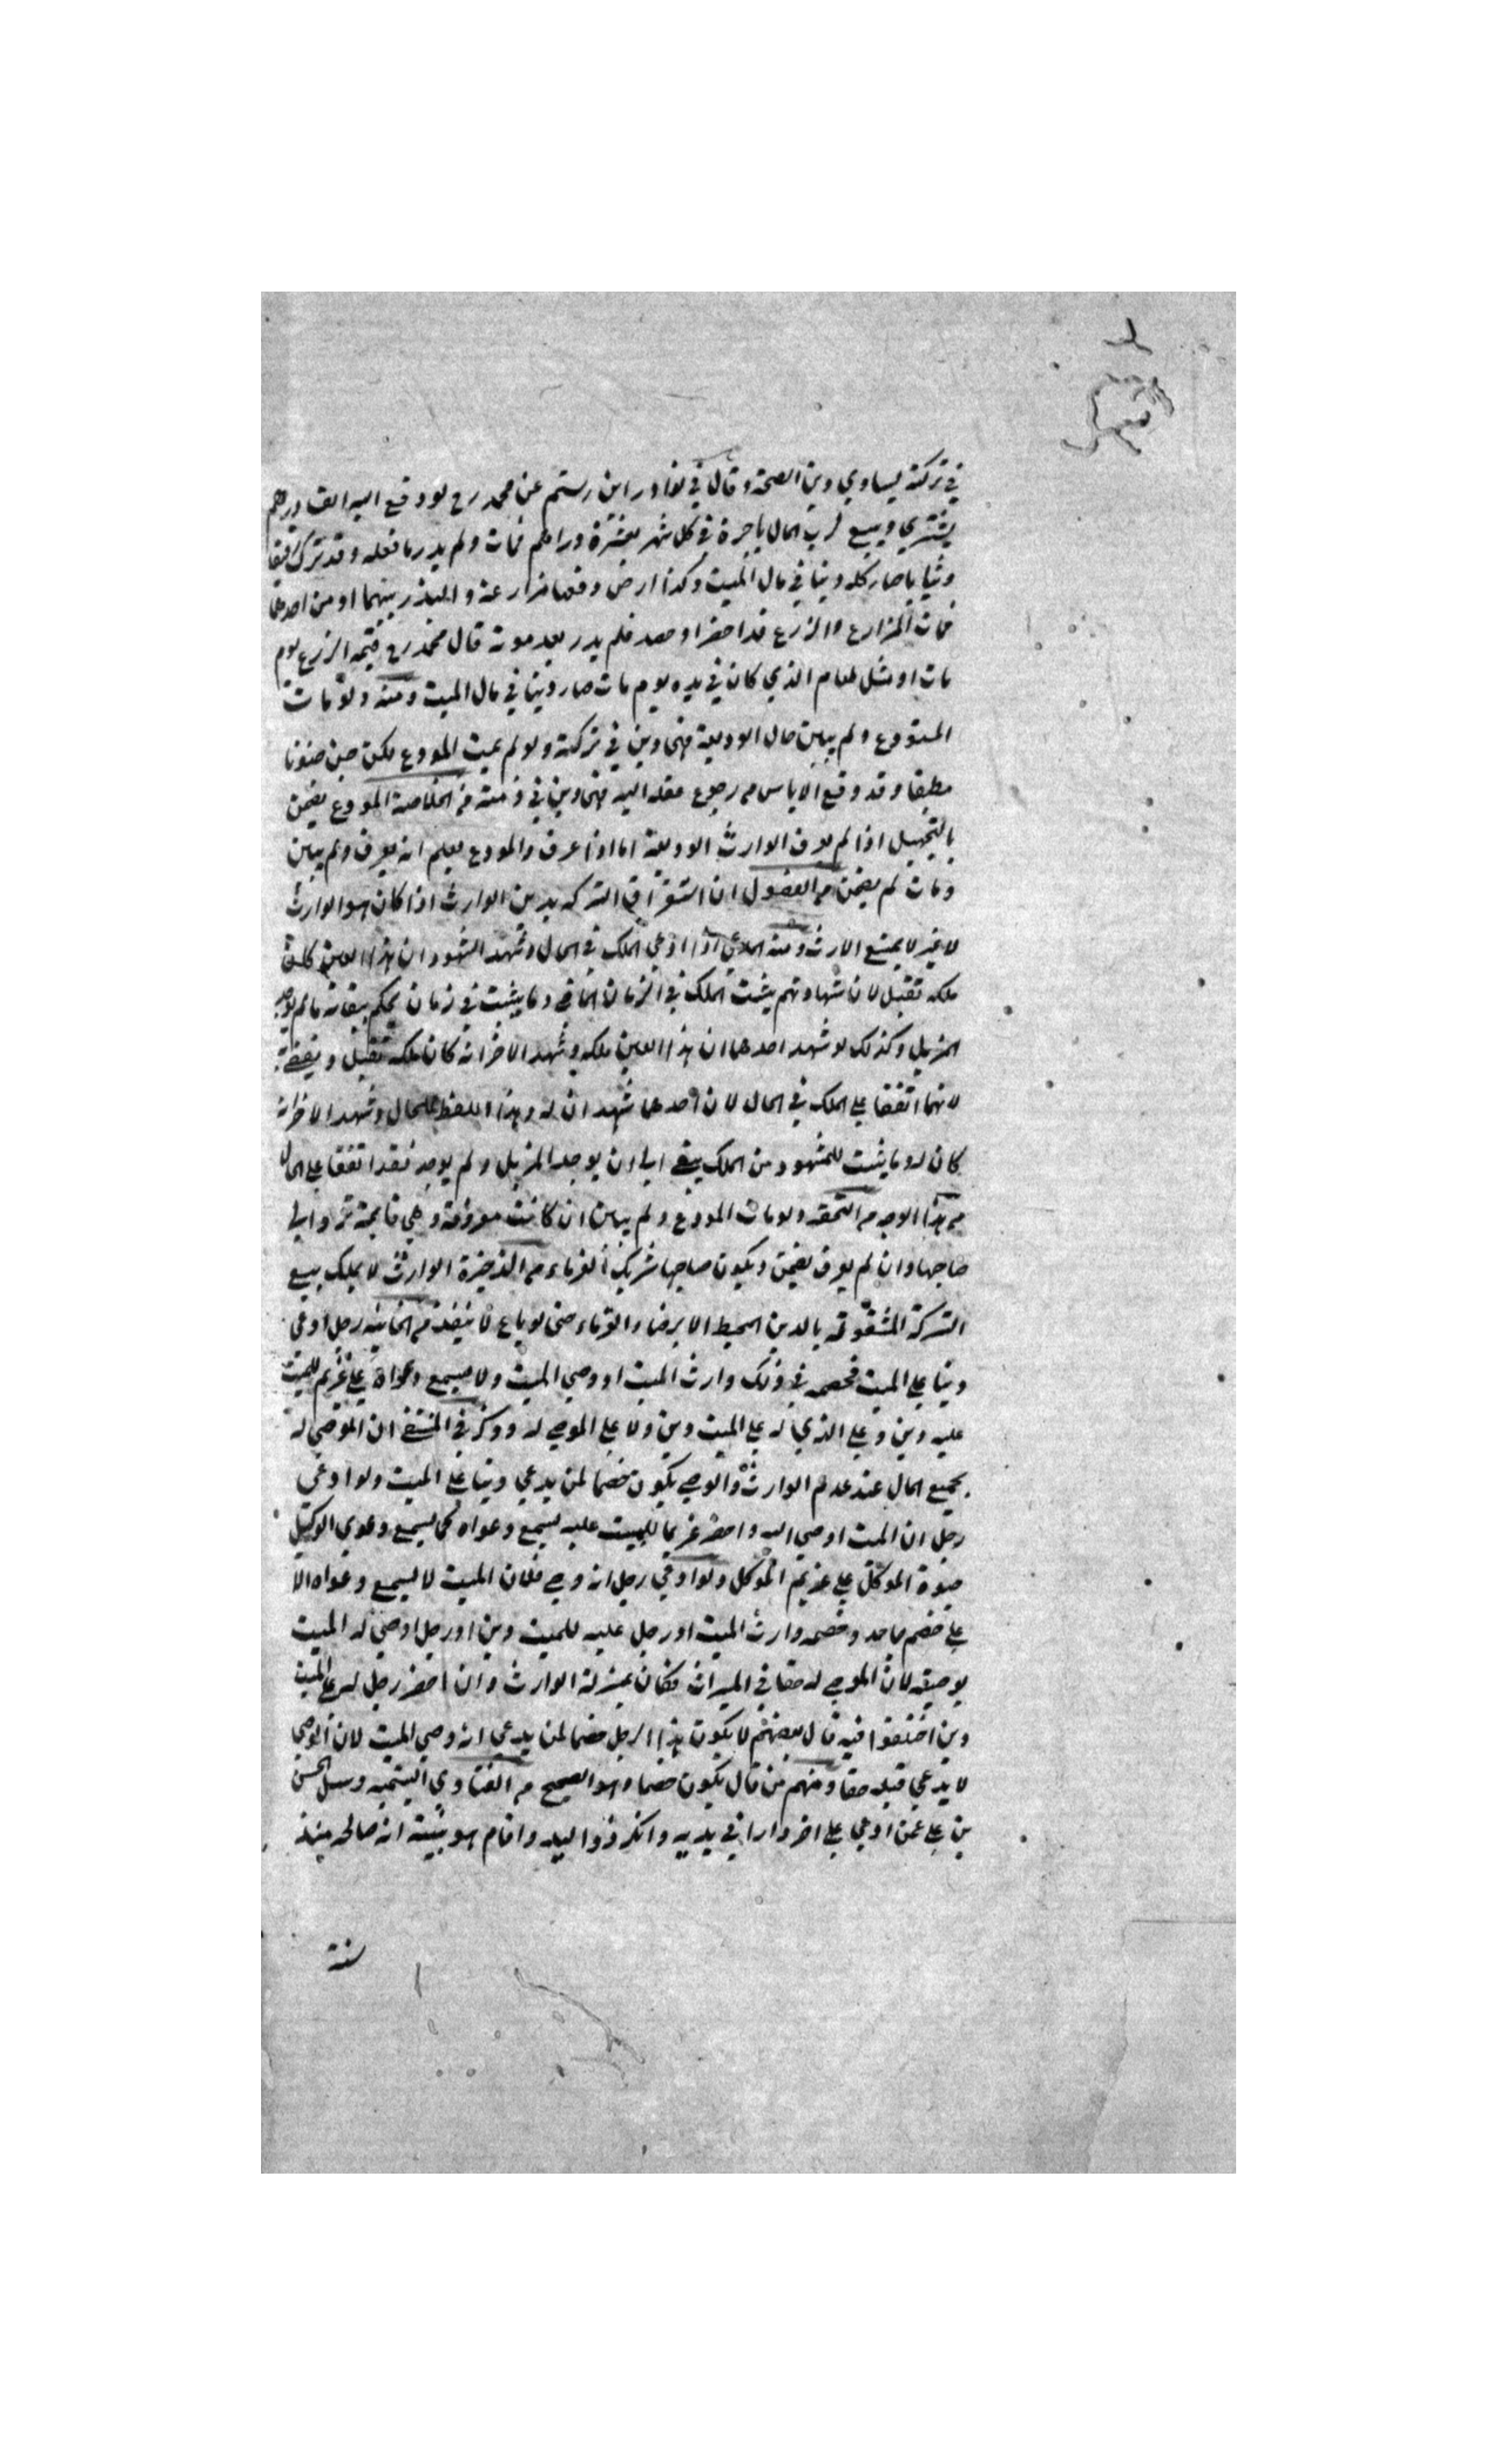 في تركته يساوي دين الصحة وقال في نوادر ابن رستم عن محمد رح لو دفع اليه الف درهم
يشتري ويبيع لرب المال باجرة في كل شهر بعشرة دراهم فمات ولم يدر ما فعله وقد ترك رقيقا
وثيابا صار كله دينا في مال الميت وكذا ارض دفعها مزارعة والبذر بينهما او من احدهما
فمات المزارع والزرع قد اخضر او حصد فلم يدر بعد موته قال محمد رح قيمة الزرع يوم
مات او مثل طعام الذي كان في يده يوم مات صار دينا في مال الميت ومنه ولو مات
المستودع ولم يبين حال الوديعة فهي دين في تركته ولو لم يمت المودع لكن جن جنونا
مطبقا وقد وقع الاياس من رجوع عقله اليه فهي دين في ذمته من الخلاصة المودع يضمن
بالتجهيل اذا لم يعرف الوارث الوديعة اما اذا عرف والمودع يعلم انه يعرف ولم يبين
ومات لم يضمن من الفصول ان استغراق التركة بدين الوارث اذا كان هو الوارث
لا غير لا يمنع الارث ومنه المدعي اذا ادعى الملك في الحال وشهد الشهود ان هذا العين كان
ملكه تقبل لان شهادتهم يثبت الملك في الزمان الماضي وما يثبت في زمان يحكم ببقائه ما لم يوجد
المزيل وكذلك لو شهد احدهما ان هذا العين ملكه وشهد الاخر انه كان ملكه تقبل ويقضي به
لانهما اتفقا على الملك في الحال لان احدهما شهد ان له وهذا اللفظ للحال وشهد الاخر انه
كان له وما يثبت للمشهود من الملك يبقى الى ان يوجد المزيل ولم يوجد فقد اتفقا على الحال
من هذا الوجه من ولو مات المودع ولم يبين ان كانت معروفة وهي قائمة ترد الى
صاحبها وان لم يعرف يضمن ويكون صاحبها شريك الغرماء من الذخيرة الوارث لا يملك بيع
التركة المستغرقة بالدين المحيط الا برضاء الغرماء حتى لو باع لا ينفذ من الخانية رجل ادعى
دينا على الميت فخصمه في ذلك وارث الميت او وصي الميت ولا يسمع دعواه على غريم للميت
عليه دين وعلى الذي له على الميت دين ولا على الموصى له وذكر في المنتقى ان الموصى له
بجميع المال عند عدم الوارث والوصي يكون خصما لمن يدعي دينا على الميت ولو ادعى
رجل ان الميت اوصى اليه واحضر غريما للميت عليه يسمع دعواه كما يسمع دعوى الوكيل
حيوة الموكل على غريم الموكل ولو ادعى رجل انه وصي فلان الميت لا يسمع دعواه الا
على خصم جاحد وخصمه وارث الميت او رجل عليه للميت دين او رجل اوصى له الميت
بوصية لان الموصى له حقا في الميراث فكان بمنزلة الوارث وان احضر رجل له على الميت
دين اختلفوا فيه قال بعضهم لا يكون هذا الرجل خصما لمن يدعي انه وصي الميت لان الوصي
لا يدعي قبله حقا ومنهم من قال يكون خصما وهو الصحيح من الفتاوي اليتيمة وسئل الحسن
بن علي عمن ادعى على اخر دارا في يديه وانكر ذو اليد واقام هو بينة انه صالحه منذ
سنة